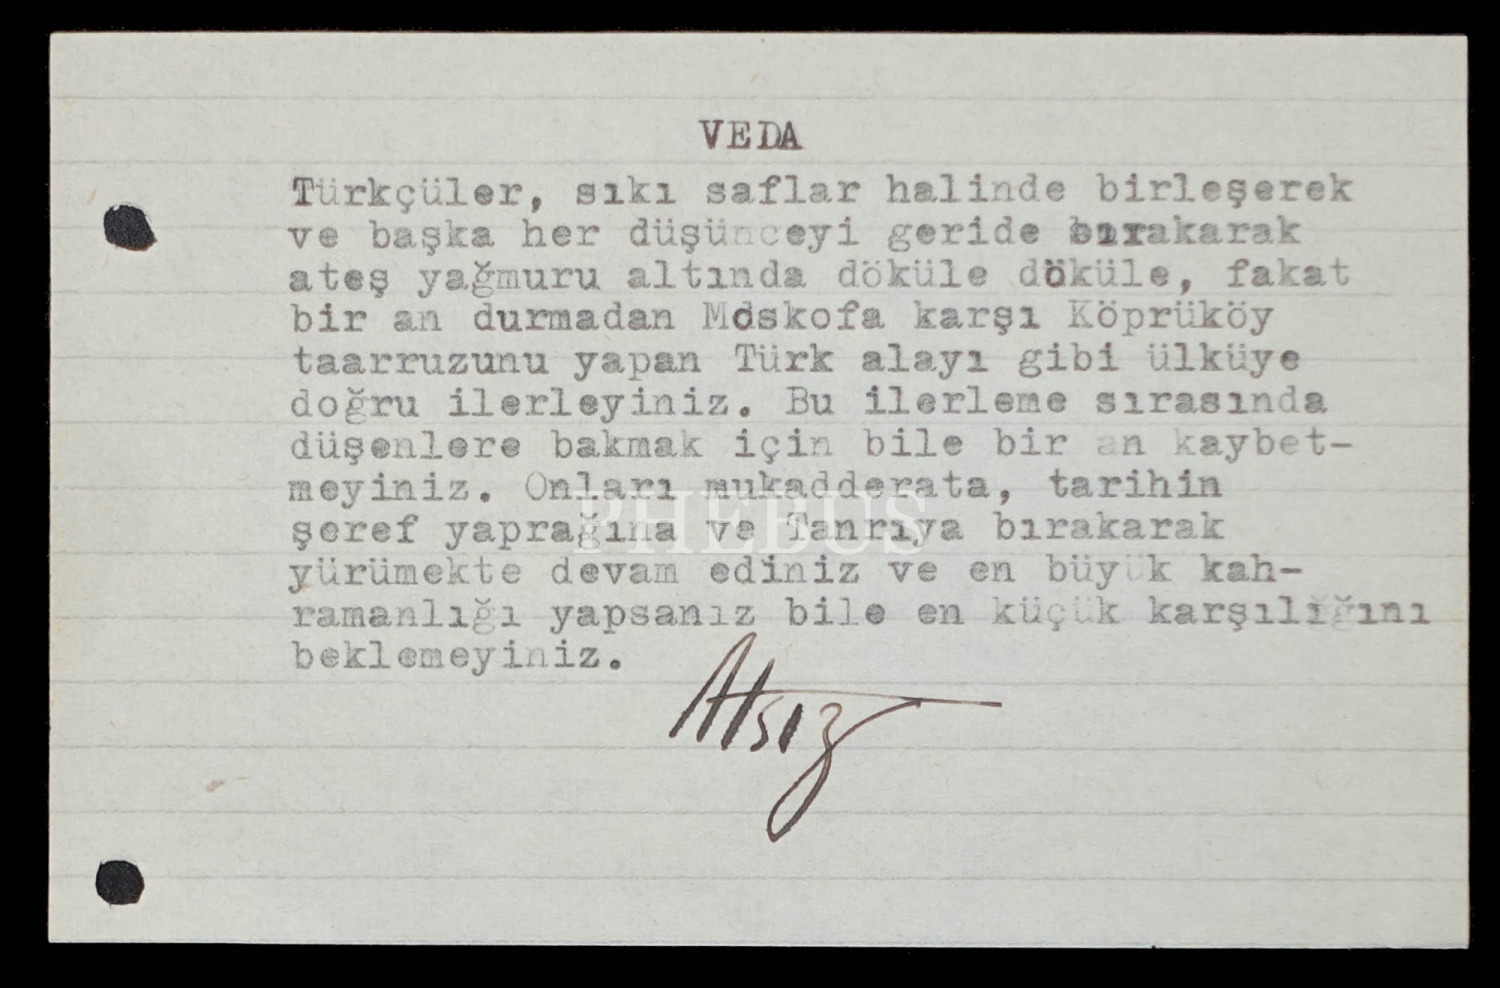 VEDA
Türkçüler, sıkı saflar halinde birleşerek
ve başka her düşünceyi geride bırakarak
ateş yağmuru altında döküle döküle, fakat
bir an durmadan Moskofa karşı Köprüköy
taarruzunu yapan Türk alayı gibi ülküye
doğru ilerleyiniz. Bu ilerleme sırasında
düşenlere bakmak için bile bir an kaybet-
meyiniz. Onları mukadderata, tarihin
PHEBUS
şeref yaprağına ve Tanrıya bırakarak
yürümekte devam ediniz ve en büyük kah-
ramanlığı yapsanız bile en küçük karşılığını
beklemeyiniz.
Atsız